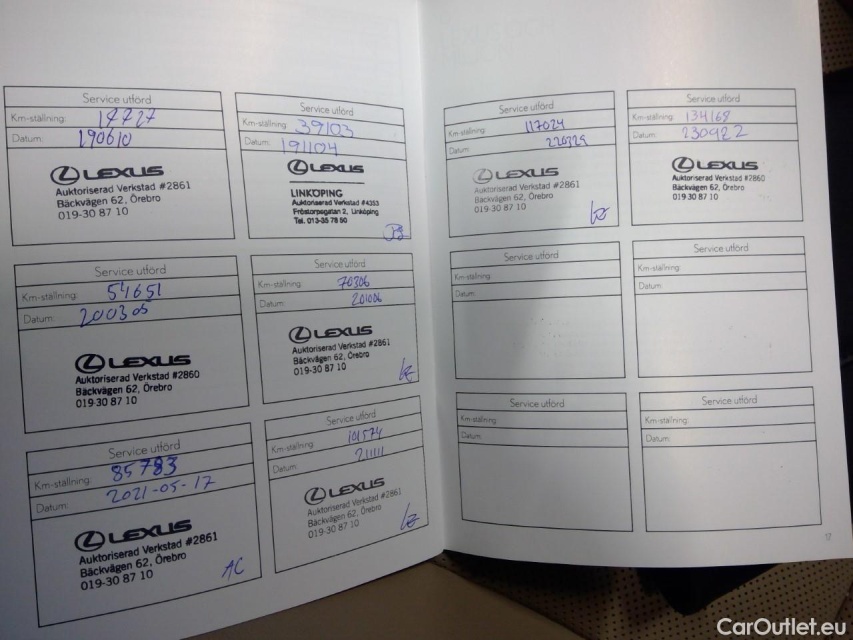 Service utförd
Km-ställning: 19727
Datum: 190610
LEXUS
Auktoriserad Verkstad #2861
Bäckvägen 62, Örebro
019-30 87 10
Service utförd
Km-ställning: 39103
Datum: 191104
LEXUS
LINKÖPING
Auktoriserad Verkstad #4353
Fröstorpsgatan 2, Linköping
Tel. 013-35 78 50
Service utförd
Km-ställning: 54651
Datum: 200305
LEXUS
Auktoriserad Verkstad #2860
Bäckvägen 62, Örebro
019-30 87 10
Service utförd
Km-ställning: 70306
Datum: 201006
LEXUS
Auktoriserad Verkstad #2861
Bäckvägen 62, Örebro
019-30 87 10
Service utförd
Km-ställning: 85783
Datum: 2021-05-17
LEXUS
Auktoriserad Verkstad #2861
Bäckvägen 62, Örebro
019-30 87 10
AC
Service utförd
Km-ställning: 101574
Datum: 21111
LEXUS
Auktoriserad Verkstad #2861
Bäckvägen 62, Örebro
019-30 87 10
Service utförd
Km-ställning: 117024
Datum:
LEXUS
Auktoriserad Verkstad #2861
Bäckvägen 62, Örebro
019-30 87 10
Service utförd
Km-ställning: 134168
Datum: 230922
LEXUS
Auktoriserad Verkstad #2860
Bäckvägen 62, Örebro
019-30 87 10
Service utförd
Km-ställning:
Datum:
Service utförd
Km-ställning:
Datum:
Service utförd
Km-ställning:
Datum:
Service utförd
Km-ställning:
Datum:
17
CarOutlet.eu